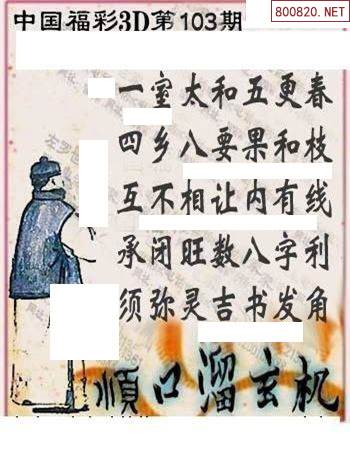 中国福彩3D第103期
800820.NET
一室太和五更春
四乡八要果和枝
互不相让内有线
承闭旺数八字利
须弥灵吉书发角
順口溜玄机